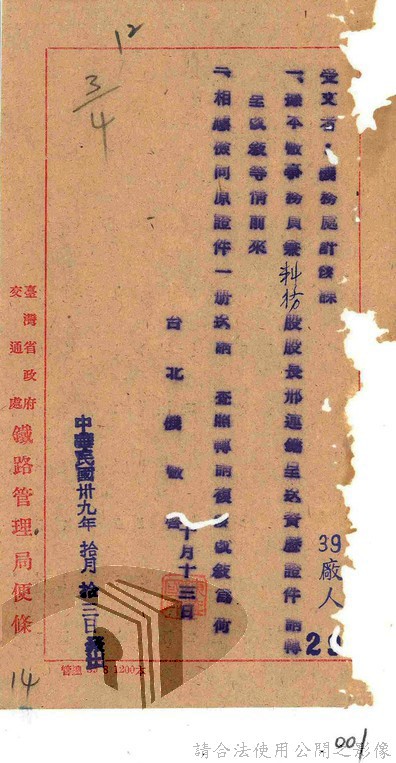 12
3/4
39廠人
受文者：機務處計課
一、據本廠事務員兼料股股長邢運呈送資歷證件請轉
呈改敘等情前來
二、相應檢同原證件一册送請 查照轉請複改敘為荷
台北機廠
十月十三日
中華民國卅九年拾月拾三日
臺灣省政府
交通處
鐵路管理局便條
14
001
請合法使用公開之影像